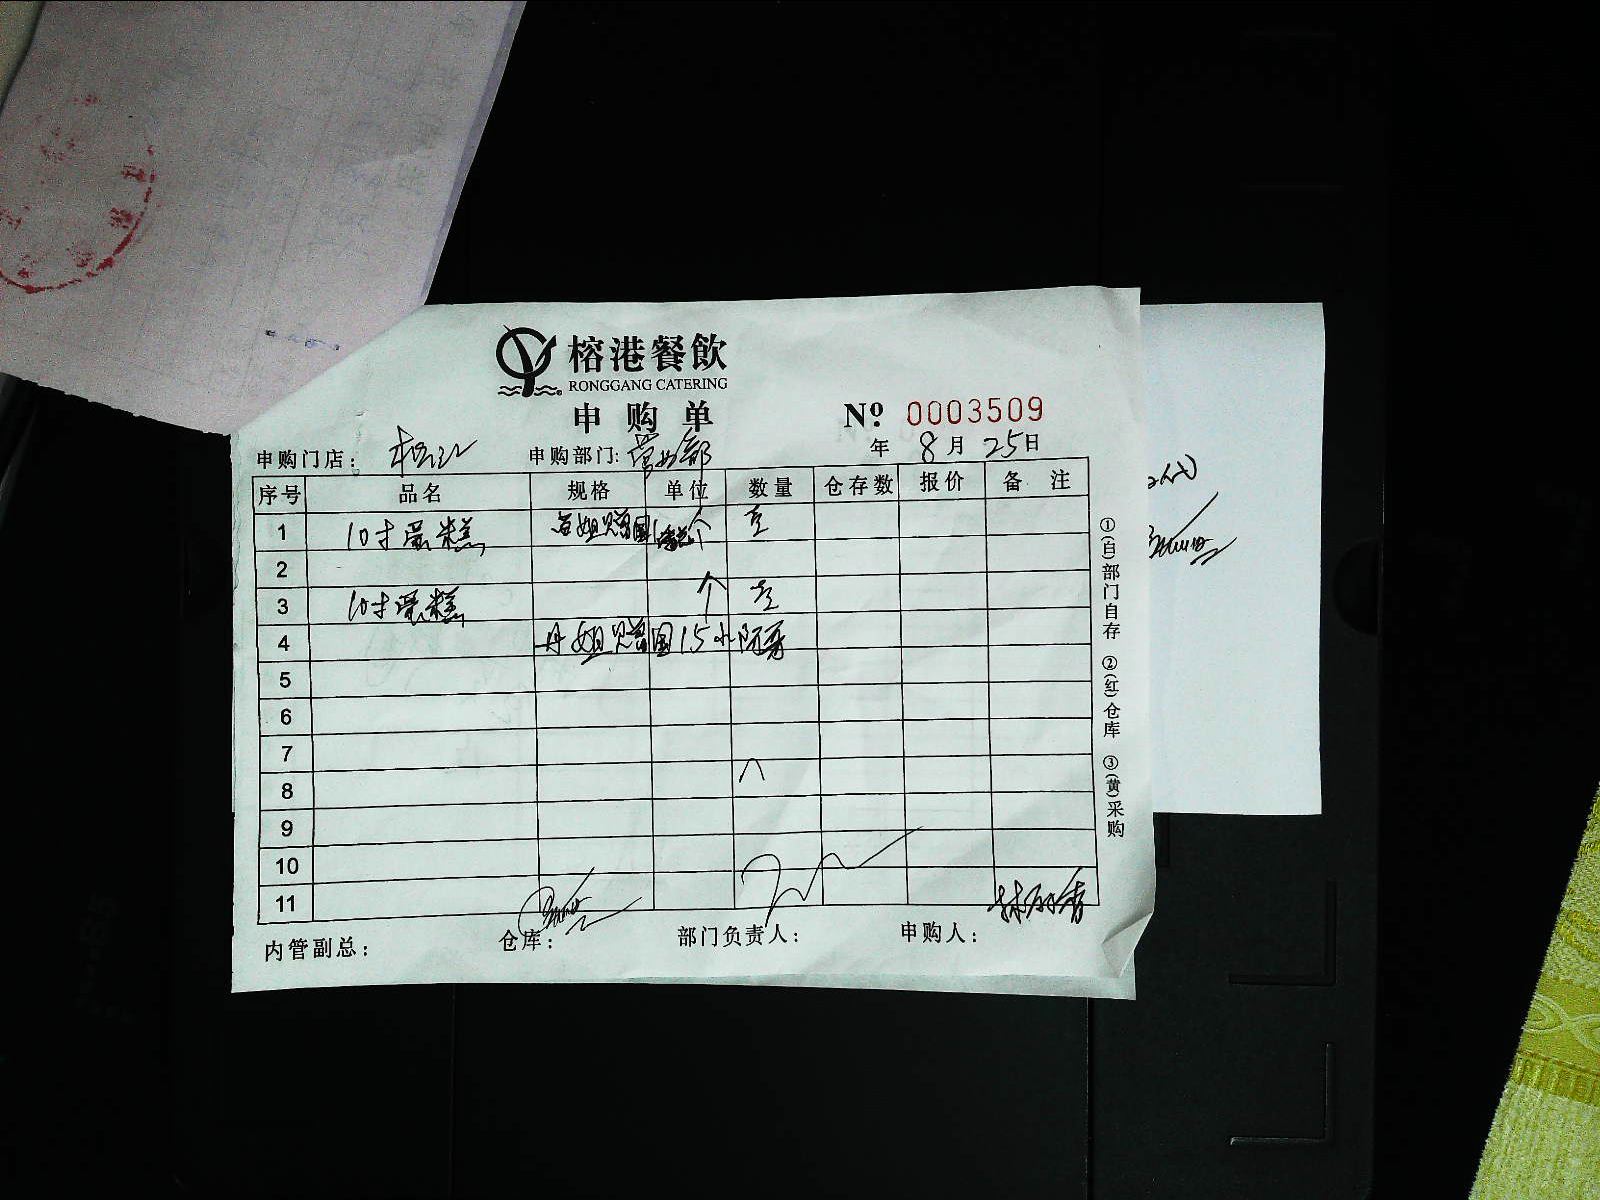 榕港餐飲
RONGGANG CATERING
申购单
Nº 0003509
申购门店: 申购部门: 营业部 年 8月25日
序号 品名 规格 单位 数量 仓存数 报价 备 注
1 10寸蛋糕 个 壹
2
3 10寸蛋糕 个 壹
4 丹姐贈国15
5
6
7
8
9
10
11
内管副总: 仓库: 部门负责人: 申购人:
①(白)部门自存 ②(红)仓库 ③(黄)采购